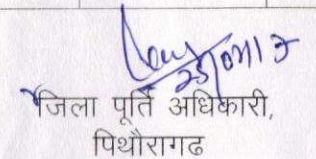 जिला पूर्ति अधिकारी,
पिथौरागढ